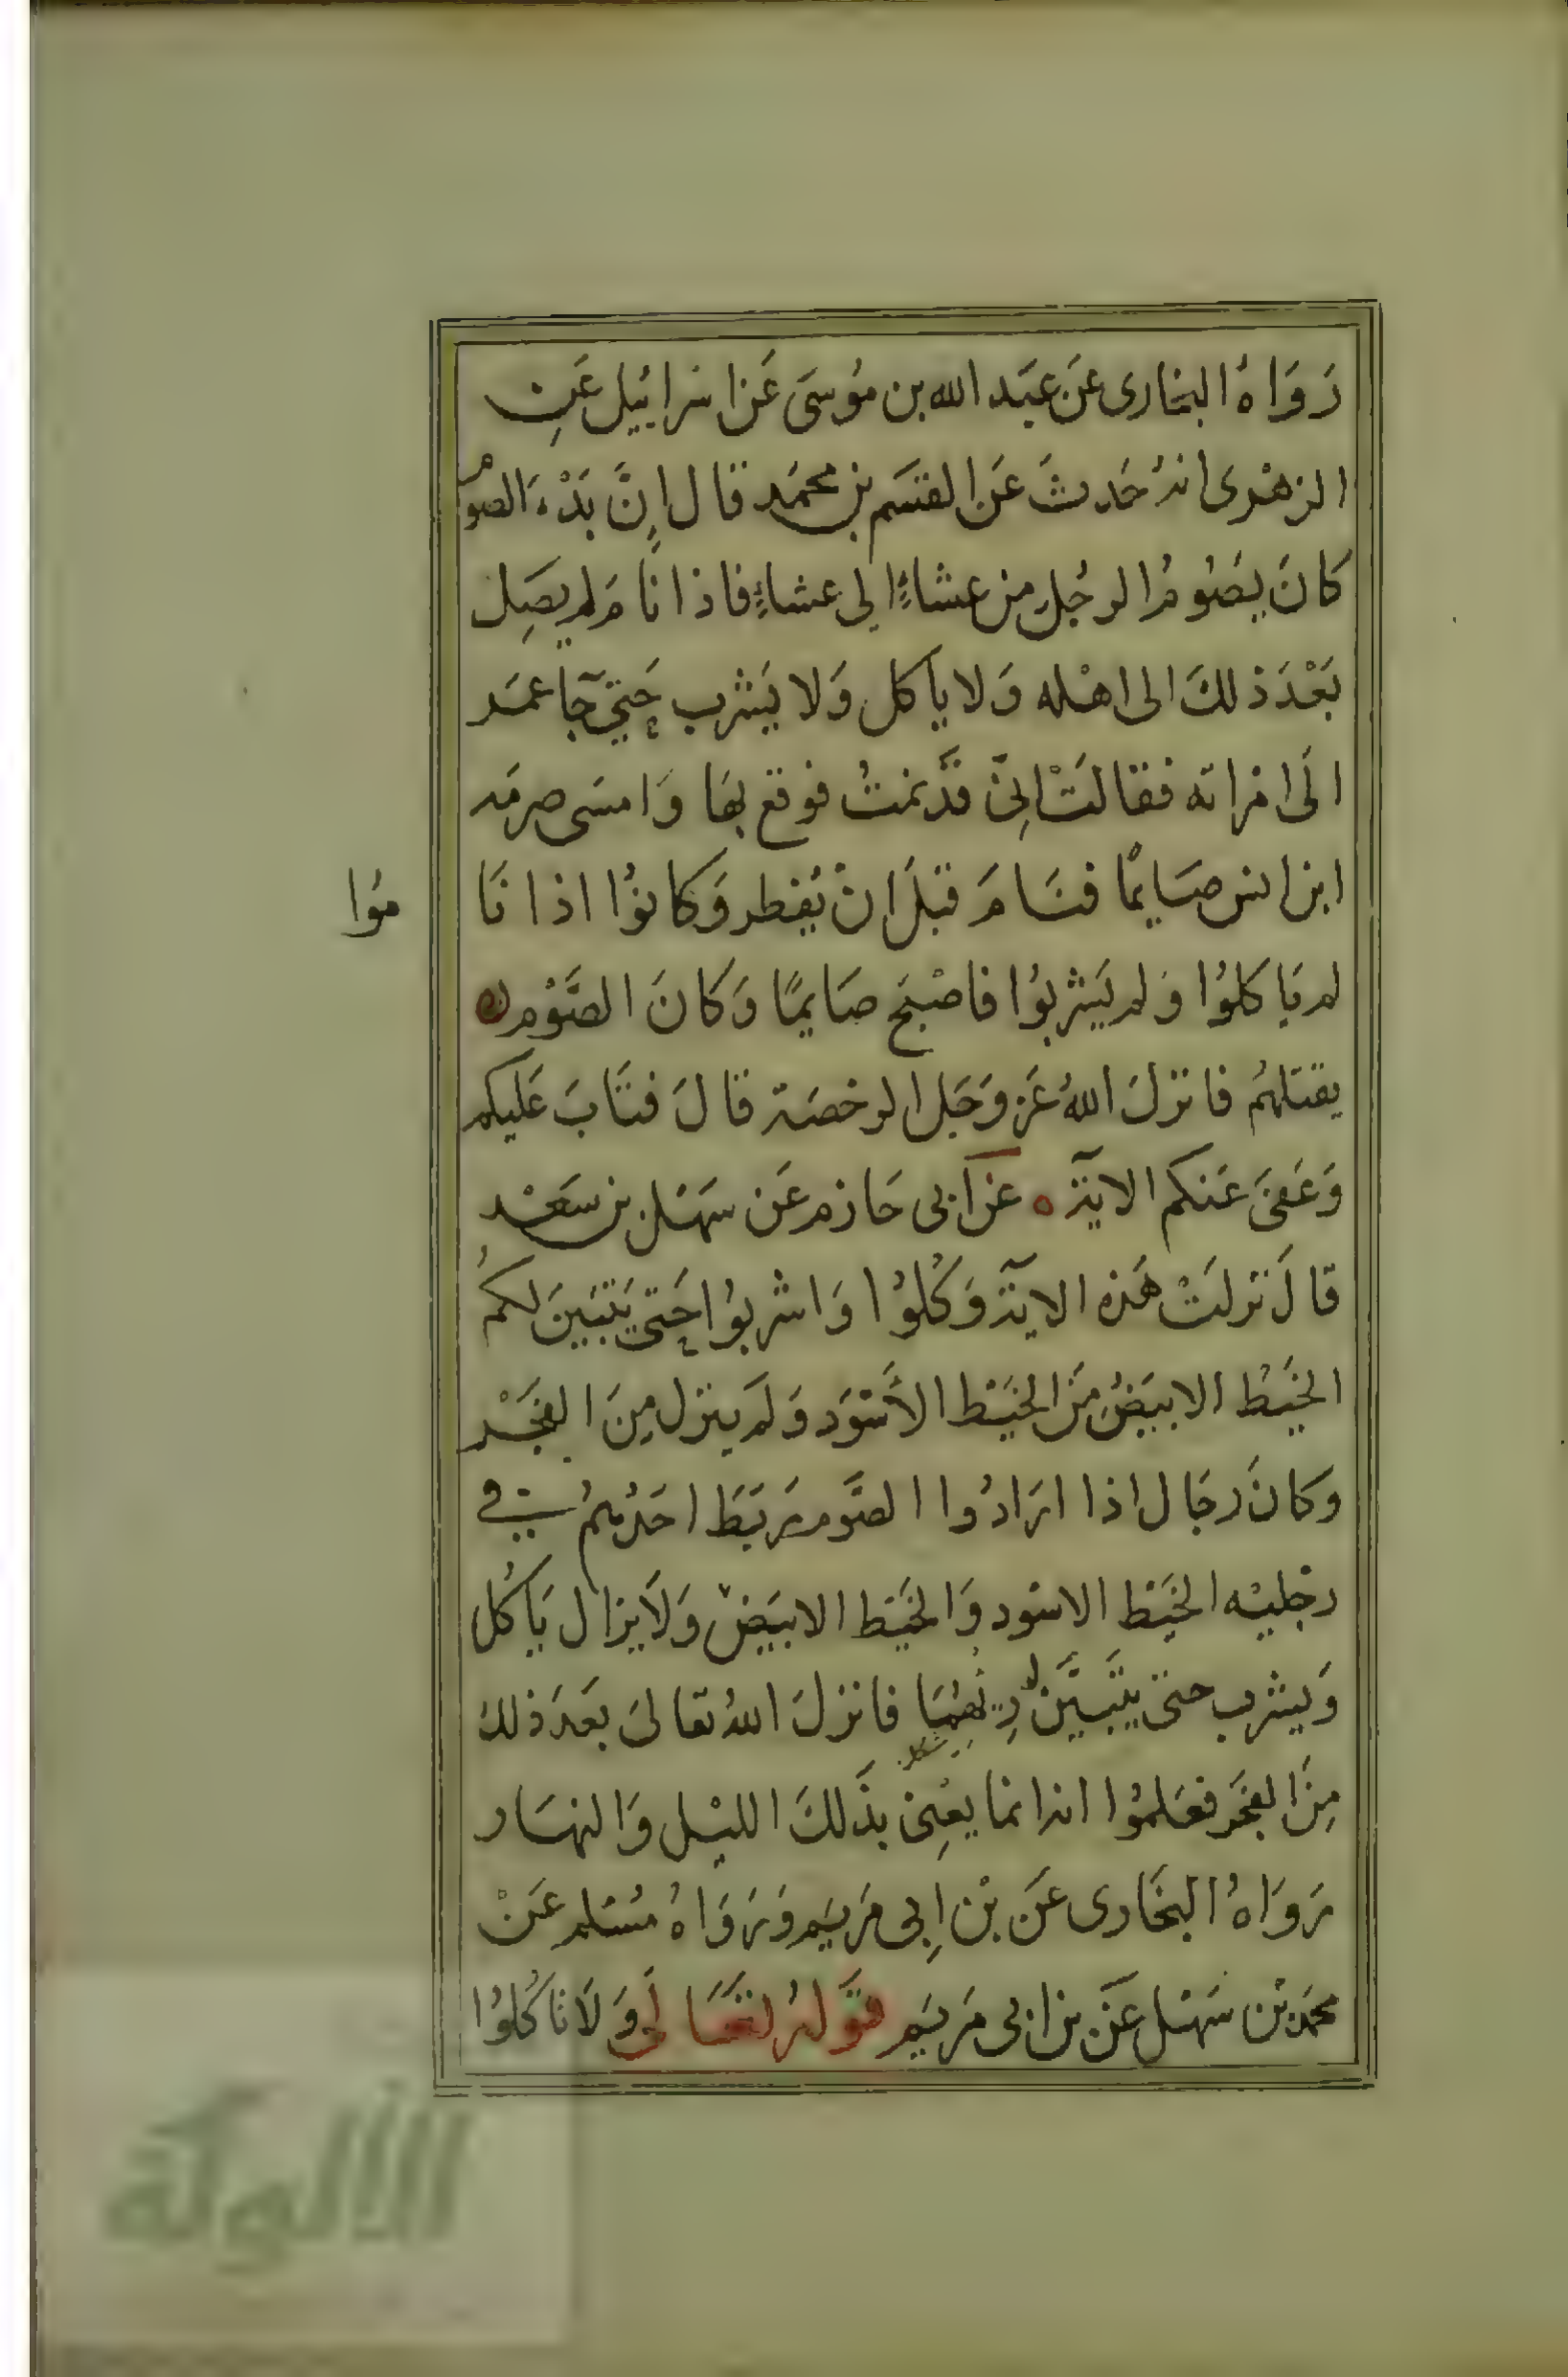 رَوَاهُ البخارى عَن عبَد الله بن مُوسَى عَن اسرابيل عَنِ
الزهْرى انهُ حَدثَ عَن القسَم بن محمَد قال اِنَّ بَدْءَ الصَومَ
كانَ يصُومُ الرجُل مِن عشاءٍ الى عشاءٍ فاذا نَامَ لم يصِل
بَعْدَ ذلكَ الى اهْله وَلا ياكل وَلا يَشرب حَتىَ جآ عمَر
الَى امْراته فقالتْ اِنىّ قدْ نمتُ فوقع بهَا وَامسَى صرمَه
ابن انس صَايمًا فنَامَ قبْلَ انْ يُفطر وَكانوُا اذا نَا
موُا
لم يَاكلوُا وَلم يَشربوُا فاصْبَح صَايمًا وَكانَ الصَّوْم
يقتلهُم فانزلَ اللهُ عَز وَجَل الرخصَة قالَ فتَابَ عَليكم
وَعَفىَ عَنكم الايَة عَن ابى حَازم عَن سَهْل بن سَعْد
قالَ نزلَتْ هَذه الايَة وَكُلوُا وَاشربوُا حَتى يَتبَينَ لكمُ
الخيَطُ الابيَضُ مَن الخيَط الأَسْوَد وَلم يَنزل مِنَ الفجَر
وَكانَ رجَال اذا ارَادُوا الصَّوم رَبَطَ احَدُهمُ في
رجْليْه الخيَط الاسْود وَالخيَط الابيَض وَلَا يزال يَاكُل
وَيشرب حتى يتَبَيَّنَ لهُ رِيهُمَا فانزلَ اللهُ تعَالىَ بعَدَ ذلكَ
مِنَ الفجَر فعَلموُا انه انما يعْنِى بذَلكَ الليْل وَالنهَار
رَوَاهُ البخَارى عَن بْن اِبى مَريَم وَرَوَاهُ مُسْلم عَنْ
محمَد بْن سَهْل عَن بن ابى مَريَم قوَلهُ تعَالَى وَلَا تاكُلوُا
الألوكة